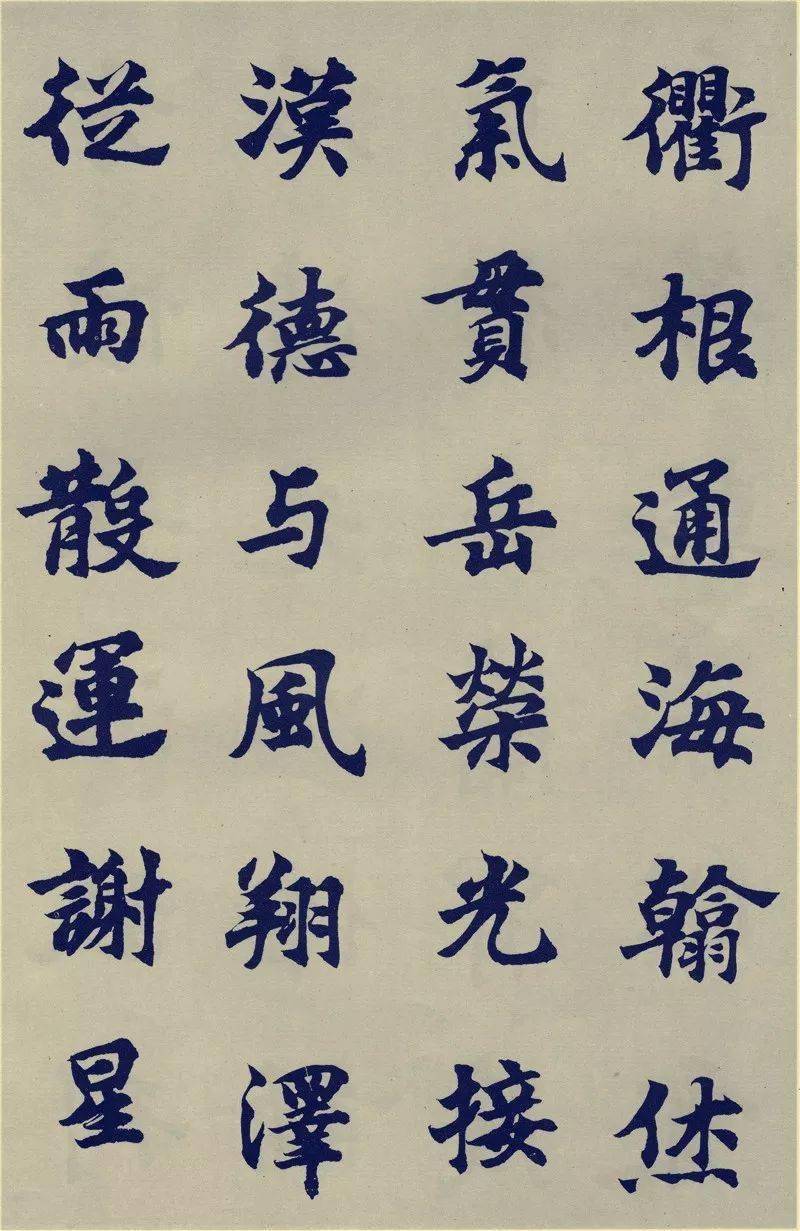 衢根通海翰烋
氣貫岳榮光接
漢德与風翔澤
從雨散運謝星